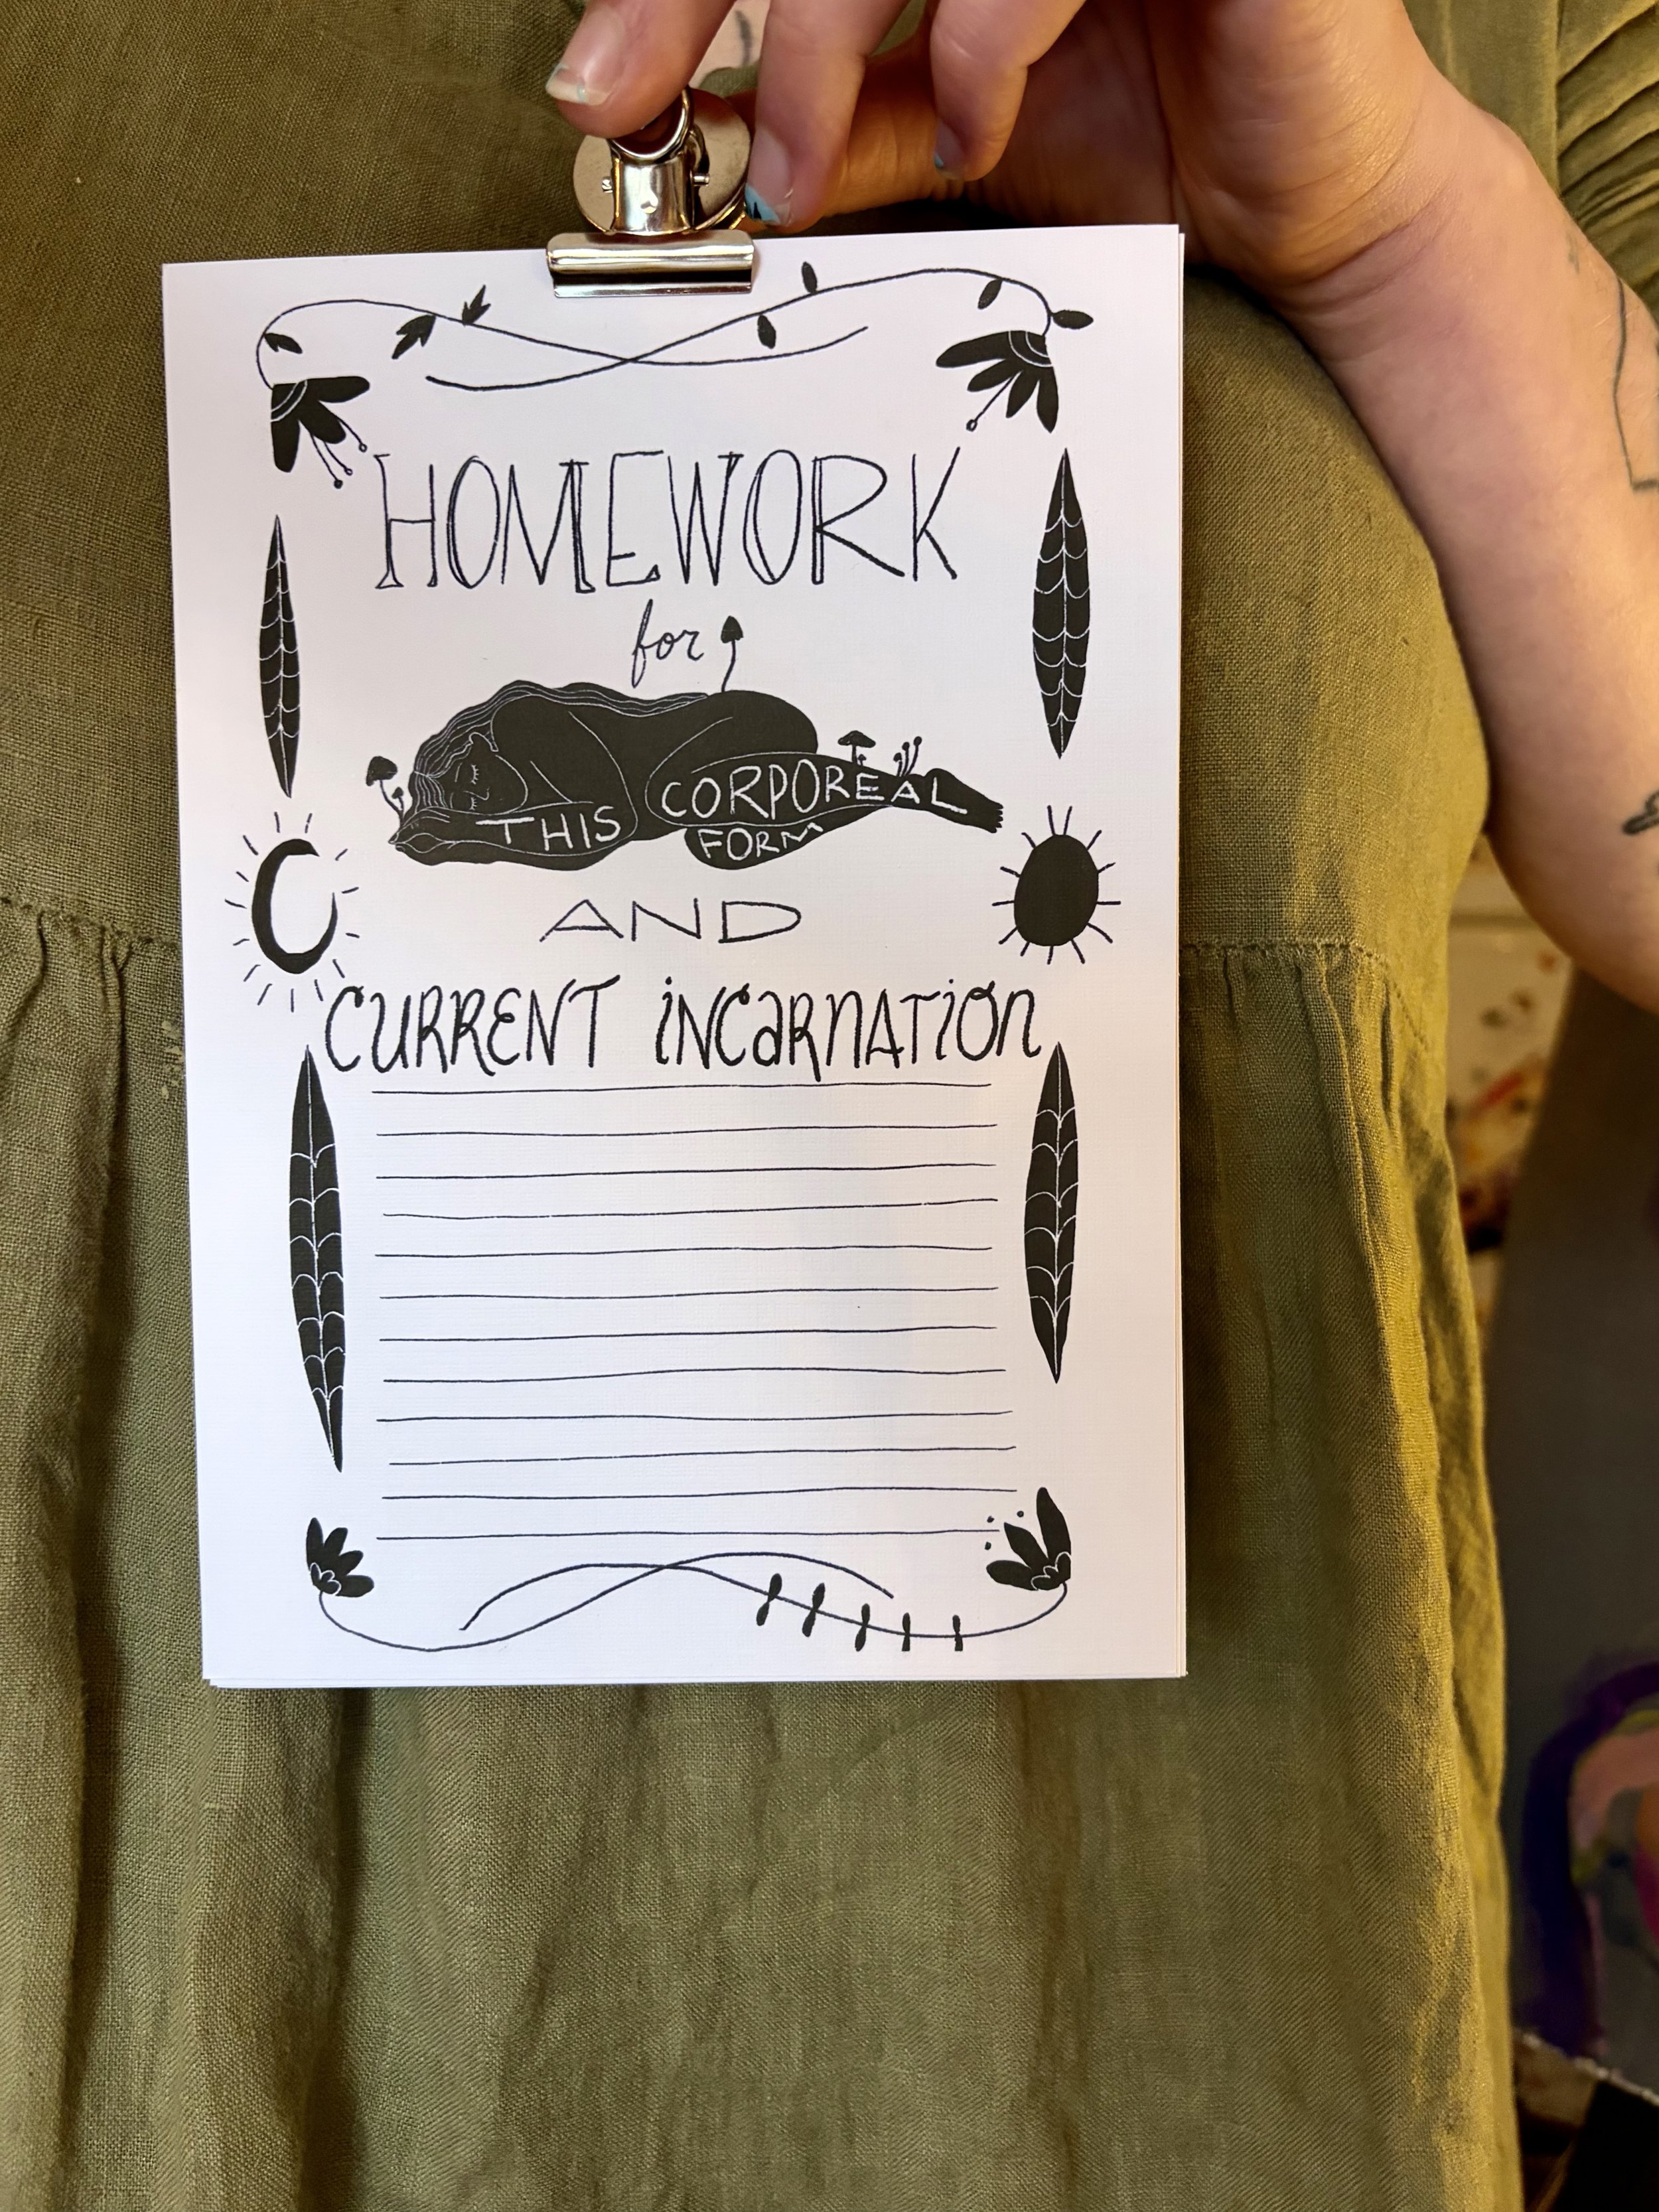 HOMEWORK
for
THIS CORPOREAL
FORM
AND
CURRENT INCARNATION